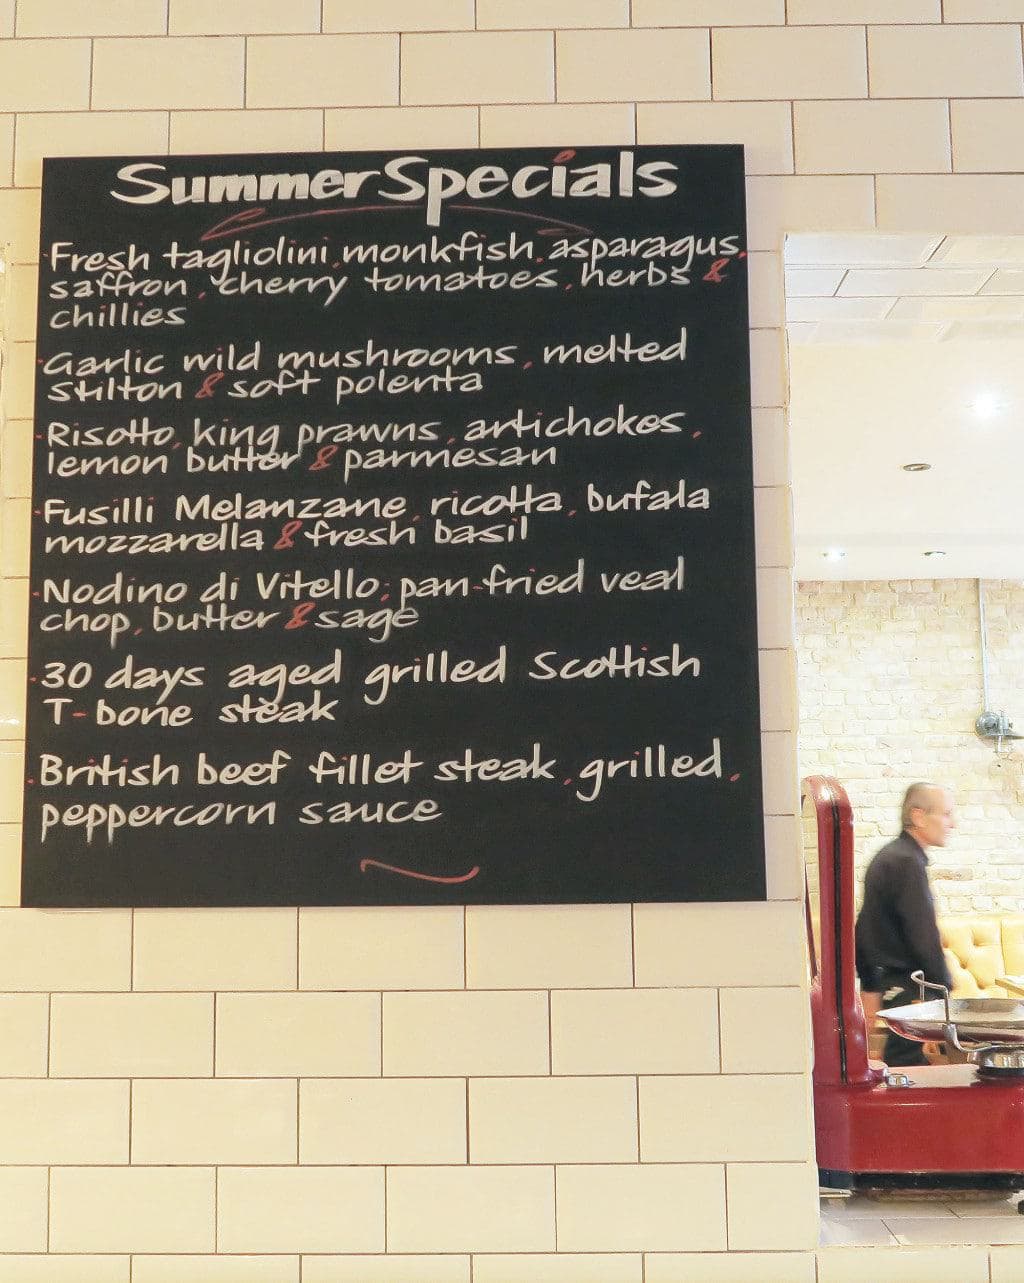 Summer Specials
Fresh tagliolini, monkfish, asparagus,
saffron, cherry tomatoes, herbs &
chillies
Garlic wild mushrooms, melted
stilton & soft polenta
Risotto, king prawns, artichokes,
lemon butter & parmesan
Fusilli Melanzane, ricotta, bufala
mozzarella & fresh basil
Nodino di Vitello; pan-fried veal
chop, butter & sage
30 days aged grilled Scottish
T-bone steak
British beef fillet steak, grilled,
peppercorn sauce